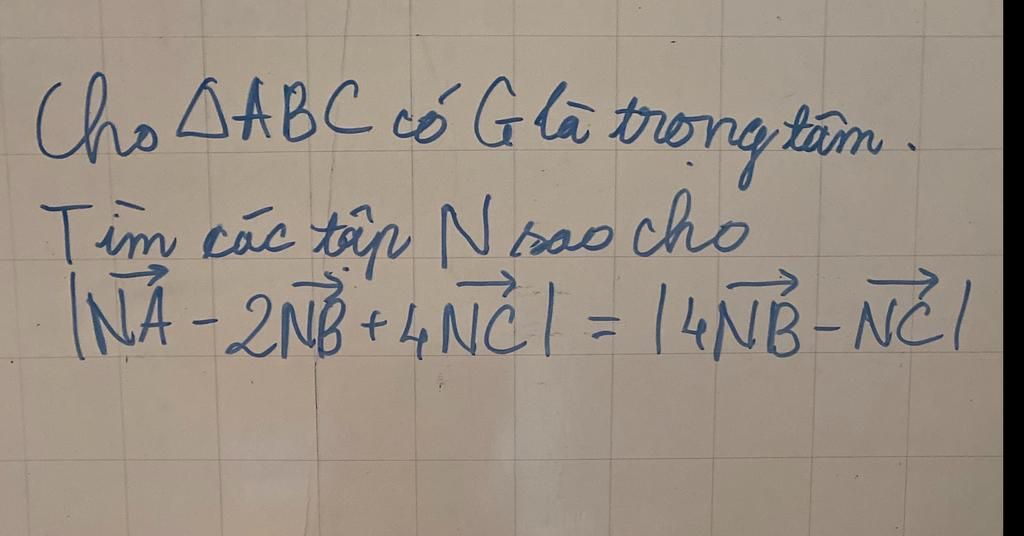 Cho △ABC có G là trọng tâm.
Tìm các tập N sao cho
|\overrightarrow{NA} - 2\overrightarrow{NB} + 4\overrightarrow{NC}| = |4\overrightarrow{NB} - \overrightarrow{NC}|